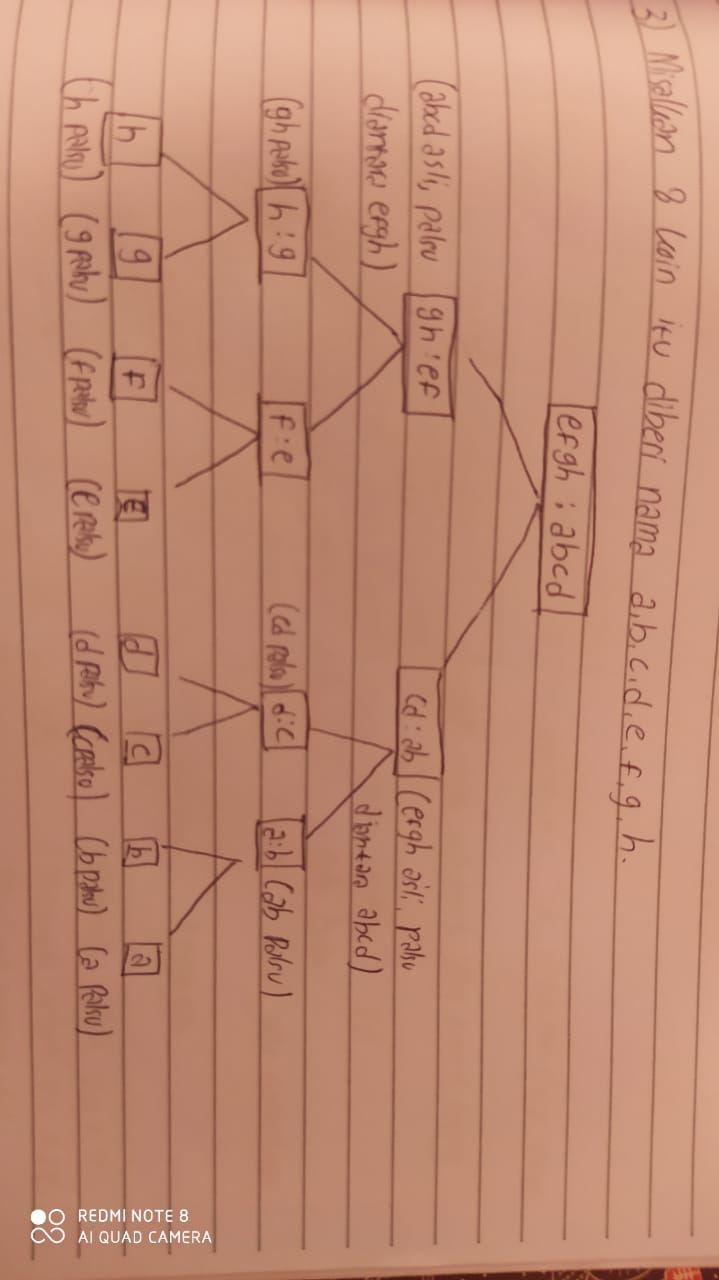 3) Misalkan 8 koin itu diberi nama a,b,c,d,e,f,g,h.
efgh : abcd
(abcd asli, palsu
diantara efgh)
gh : ef
cd : ab
(efgh asli, palsu
diantara abcd)
(gh palsu) h : g
f : e
(cd palsu) d:c
a:b (ab palsu)
h g f e d c b a
(h palsu) (g palsu) (f palsu) (e palsu) (d palsu) (c palsu) (b palsu) (a palsu)
REDMI NOTE 8
AI QUAD CAMERA